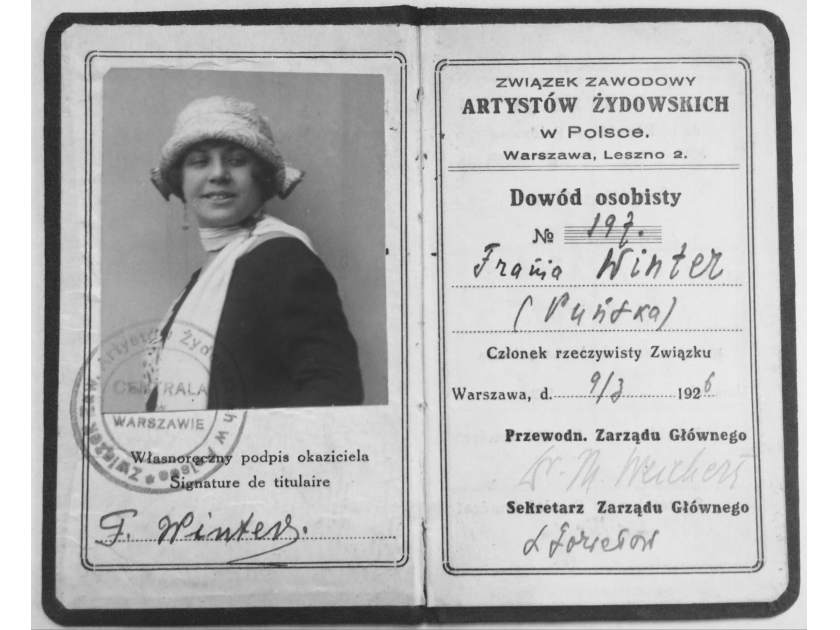 Związek Zaw. Artystów Żydowskich w Polsce
CENTRALA
WARSZAWIE
Własnoręczny podpis okaziciela
Signature de titulaire
F. Winter.
ZWIĄZEK ZAWODOWY
ARTYSTÓW ŻYDOWSKICH
w Polsce.
Warszawa, Leszno 2.
Dowód osobisty
№ 197.
Frania Winter
Członek rzeczywisty Związku
Warszawa, d. 9/3 1926
Przewodn. Zarządu Głównego
Dr. M. Weichert
Sekretarz Zarządu Głównego